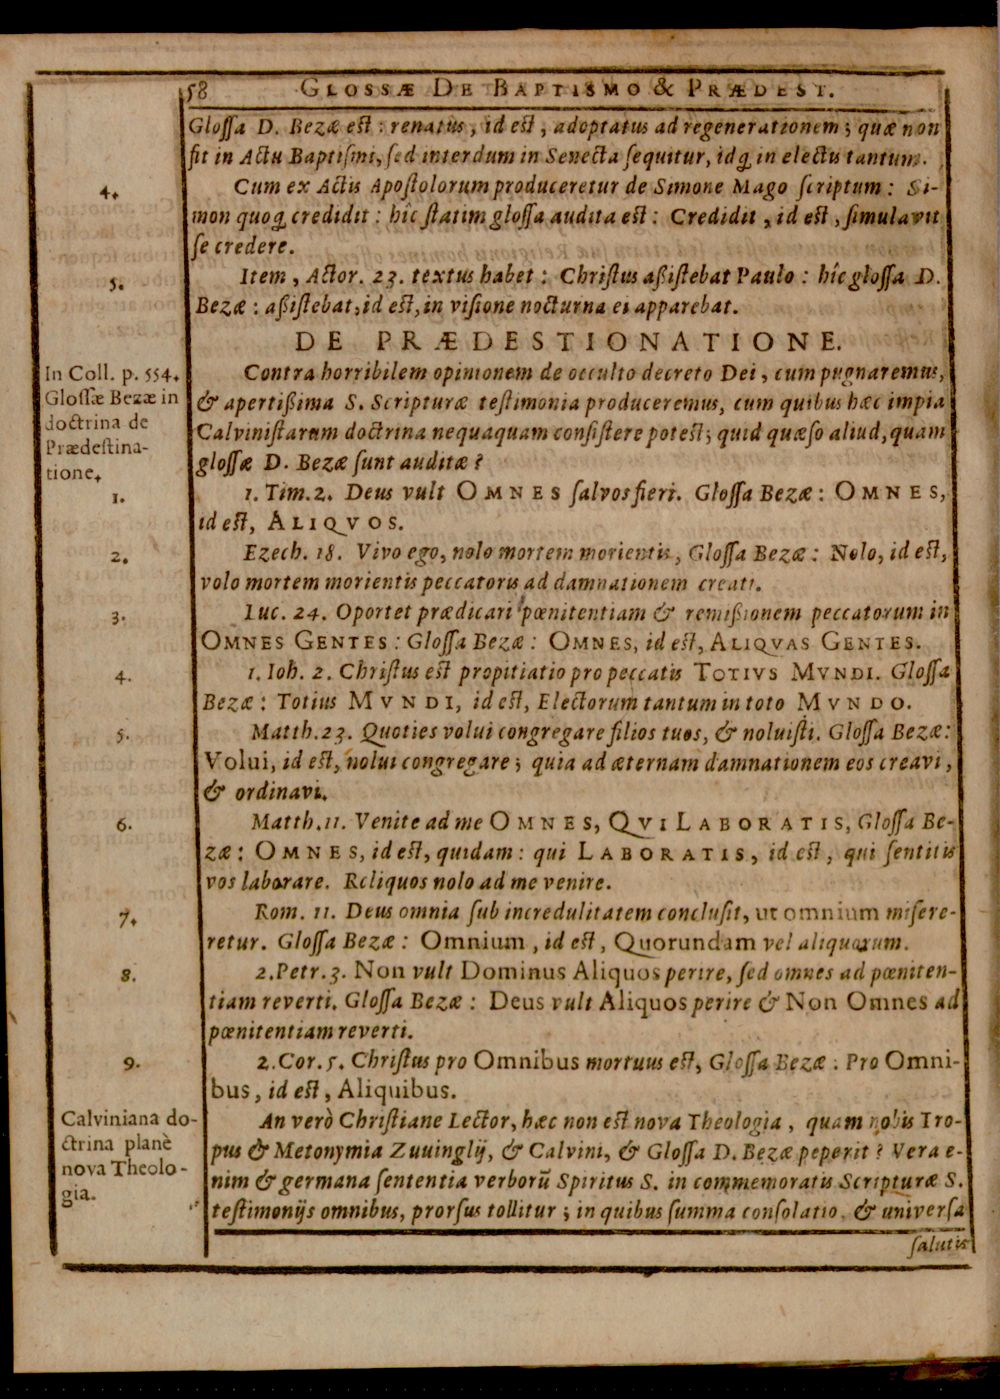 58 GLOSSÆ DE BAPTISMO & PRÆDEST.
Gloſſa D. Bezæ eſt : renatus, id eſt, adoptatus ad regenerationem ; quæ non
fit in Actu Baptiſmi, ſed interdum in Senecta ſequitur, idq́ in electis tantum.
4. Cum ex Actis Apoſtolorum produceretur de Simone Mago ſcriptum : Si-
mon quoq́ credidit : hîc ſtatim gloſſa audita eſt : Credidit, id eſt, ſimulavit
ſe credere.
5. Item, Actor. 23. textus habet : Chriſtus aßiſtebat Paulo : hîc gloſſa D.
Bezæ : aßiſtebat, id eſt, in viſione nocturna ei apparebat.
DE PRÆDESTIONATIONE.
In Coll. p. 554.
Gloſſæ Bezæ in
doctrina de
Prædeſtina-
tione.
Contra horribilem opinionem de occulto decreto Dei, cum pugnaremus,
& apertißima S. Scripturæ teſtimonia produceremus, cum quibus hæc impia
Calviniſtarum doctrina nequaquam conſiſtere poteſt ; quid quæſo aliud, quam
gloſſæ D. Bezæ ſunt auditæ ?
1. 1. Tim. 2. Deus vult OMNES ſalvos fieri. Gloſſa Bezæ : OMNES,
id eſt, ALIQVOS.
2. Ezech. 18. Vivo ego, nolo mortem morientis, Gloſſa Bezæ : Nolo, id eſt,
volo mortem morientis peccatoris ad damnationem creati.
3. Luc. 24. Oportet prædicari pœnitentiam & remißionem peccatorum in
OMNES GENTES : Gloſſa Bezæ : OMNES, id eſt, ALIQVAS GENTES.
4. 1. Ioh. 2. Chriſtus eſt propitiatio pro peccatis TOTIVS MVNDI. Gloſſa
Bezæ : Totius MVNDI, id eſt, Electorum tantum in toto MVNDO.
5. Matth. 23. Quoties volui congregare filios tuos, & noluiſti. Gloſſa Bezæ :
Volui, id eſt, nolui congregare ; quia ad æternam damnationem eos creavi,
& ordinavi.
6. Matth. 11. Venite ad me OMNES, QVI LABORATIS, Gloſſa Be-
zæ : OMNES, id eſt, quidam : qui LABORATIS, id eſt, qui ſentitis
vos laborare. Reliquos nolo ad me venire.
7. Rom. 11. Deus omnia ſub incredulitatem concluſit, ut omnium miſere-
retur. Gloſſa Bezæ : Omnium, id eſt, Quorundam vel aliquorum.
8. 2. Petr. 3. Non vult Dominus Aliquos perire, ſed omnes ad pœniten-
tiam reverti. Gloſſa Bezæ : Deus vult Aliquos perire & Non Omnes ad
pœnitentiam reverti.
9. 2. Cor. 5. Chriſtus pro Omnibus mortuus eſt, Gloſſa Bezæ : Pro Omni-
bus, id eſt, Aliquibus.
Calviniana do-
ctrina planè
nova Theolo-
gia.
An verò Chriſtiane Lector, hæc non eſt nova Theologia, quam nobis Tro-
pus & Metonymia Zuuinglij, & Calvini, & Gloſſa D. Bezæ peperit ? Vera e-
nim & germana ſententia verborū Spiritus S. in commemoratis Scripturæ S.
teſtimonijs omnibus, prorſus tollitur ; in quibus ſumma conſolatio, & univerſa
ſalutis